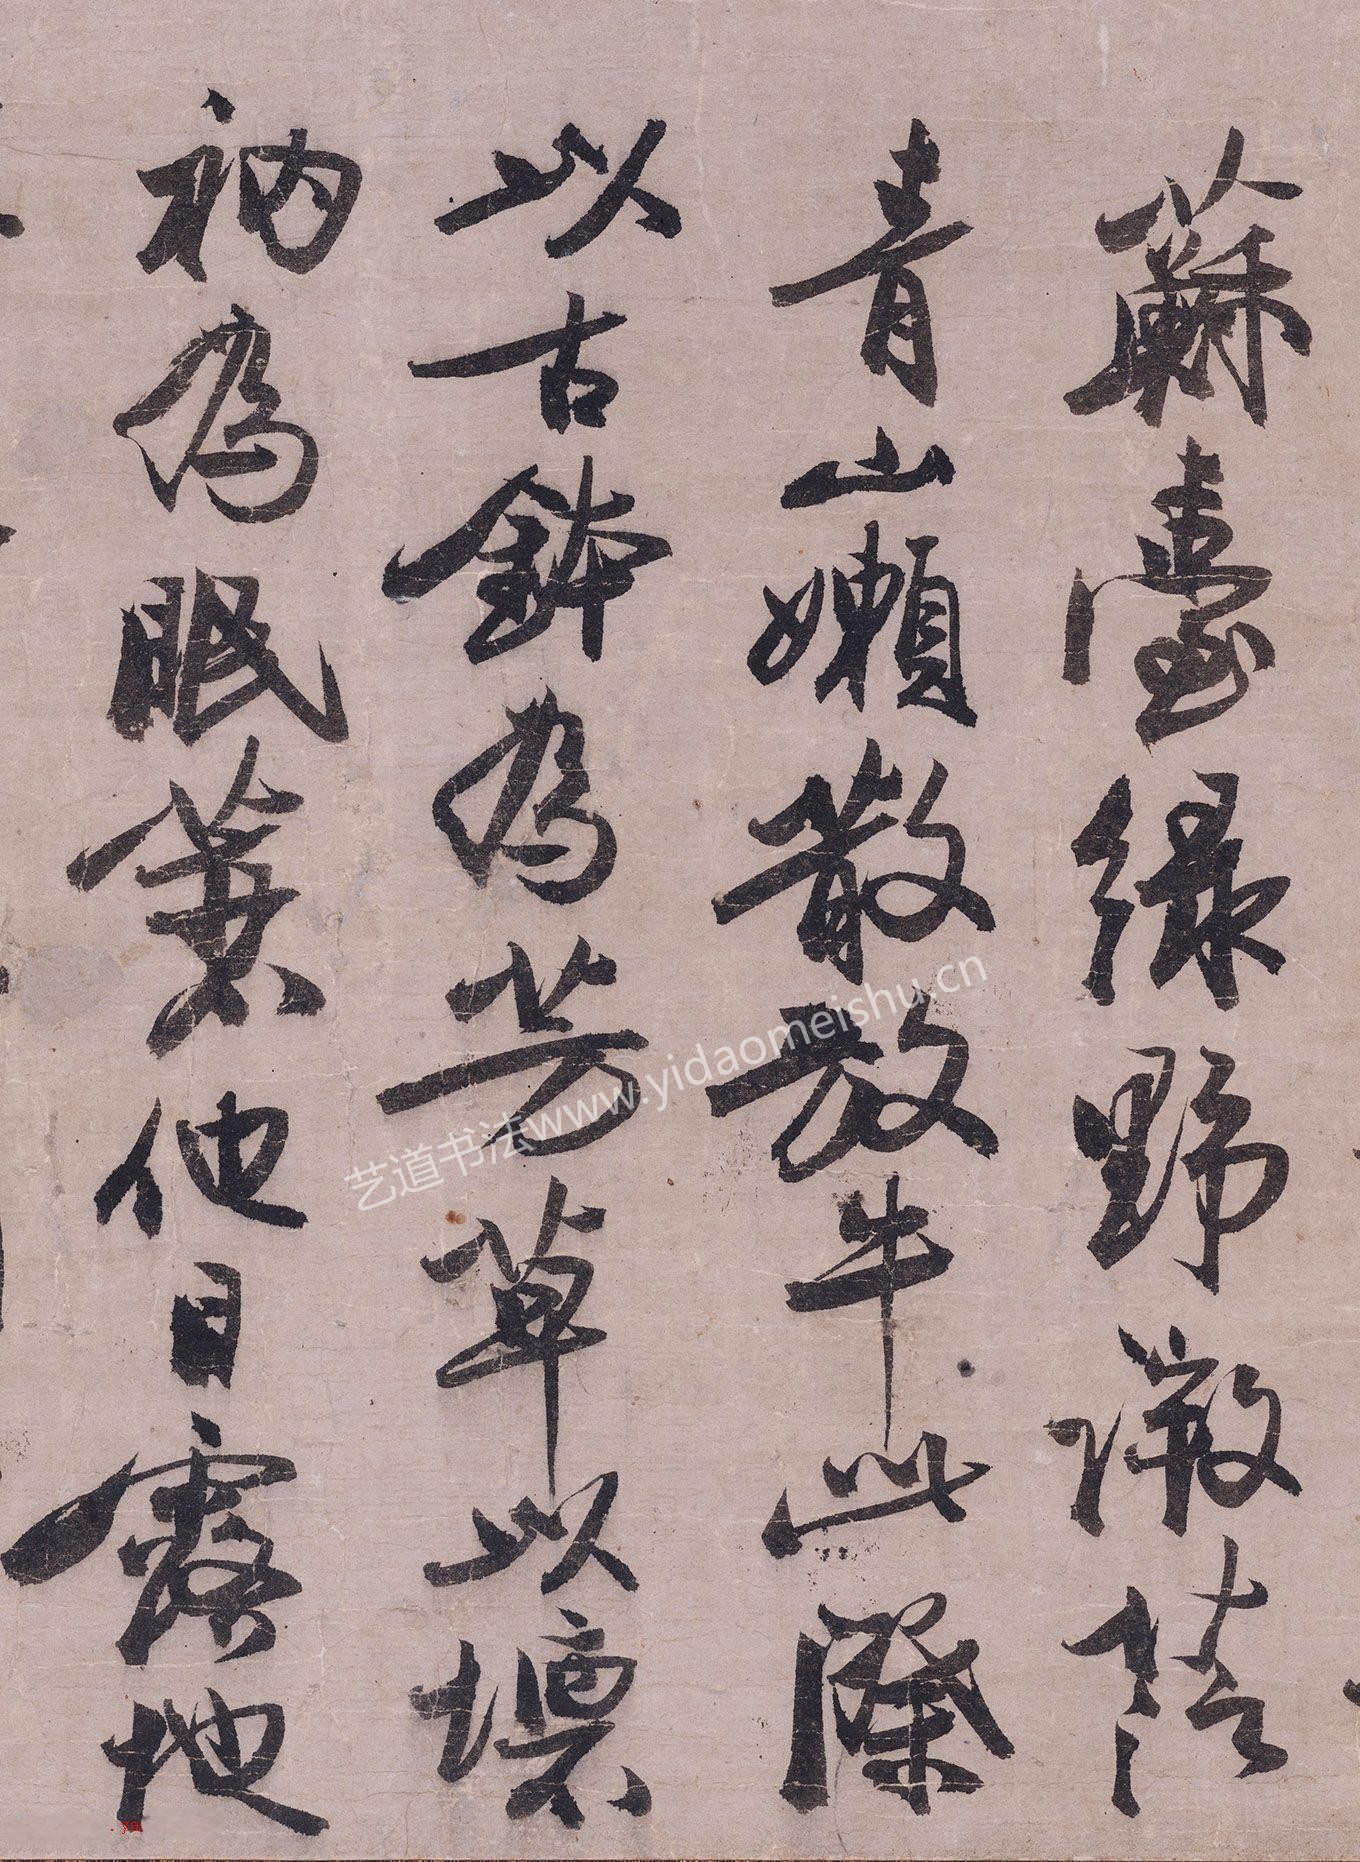 蘇臺緑野漵陸
青山嬾散放牛此際
以古鉢為芳草以壞
衲為眠蓑他日露地
艺道书法www.yidaomeishu.cn